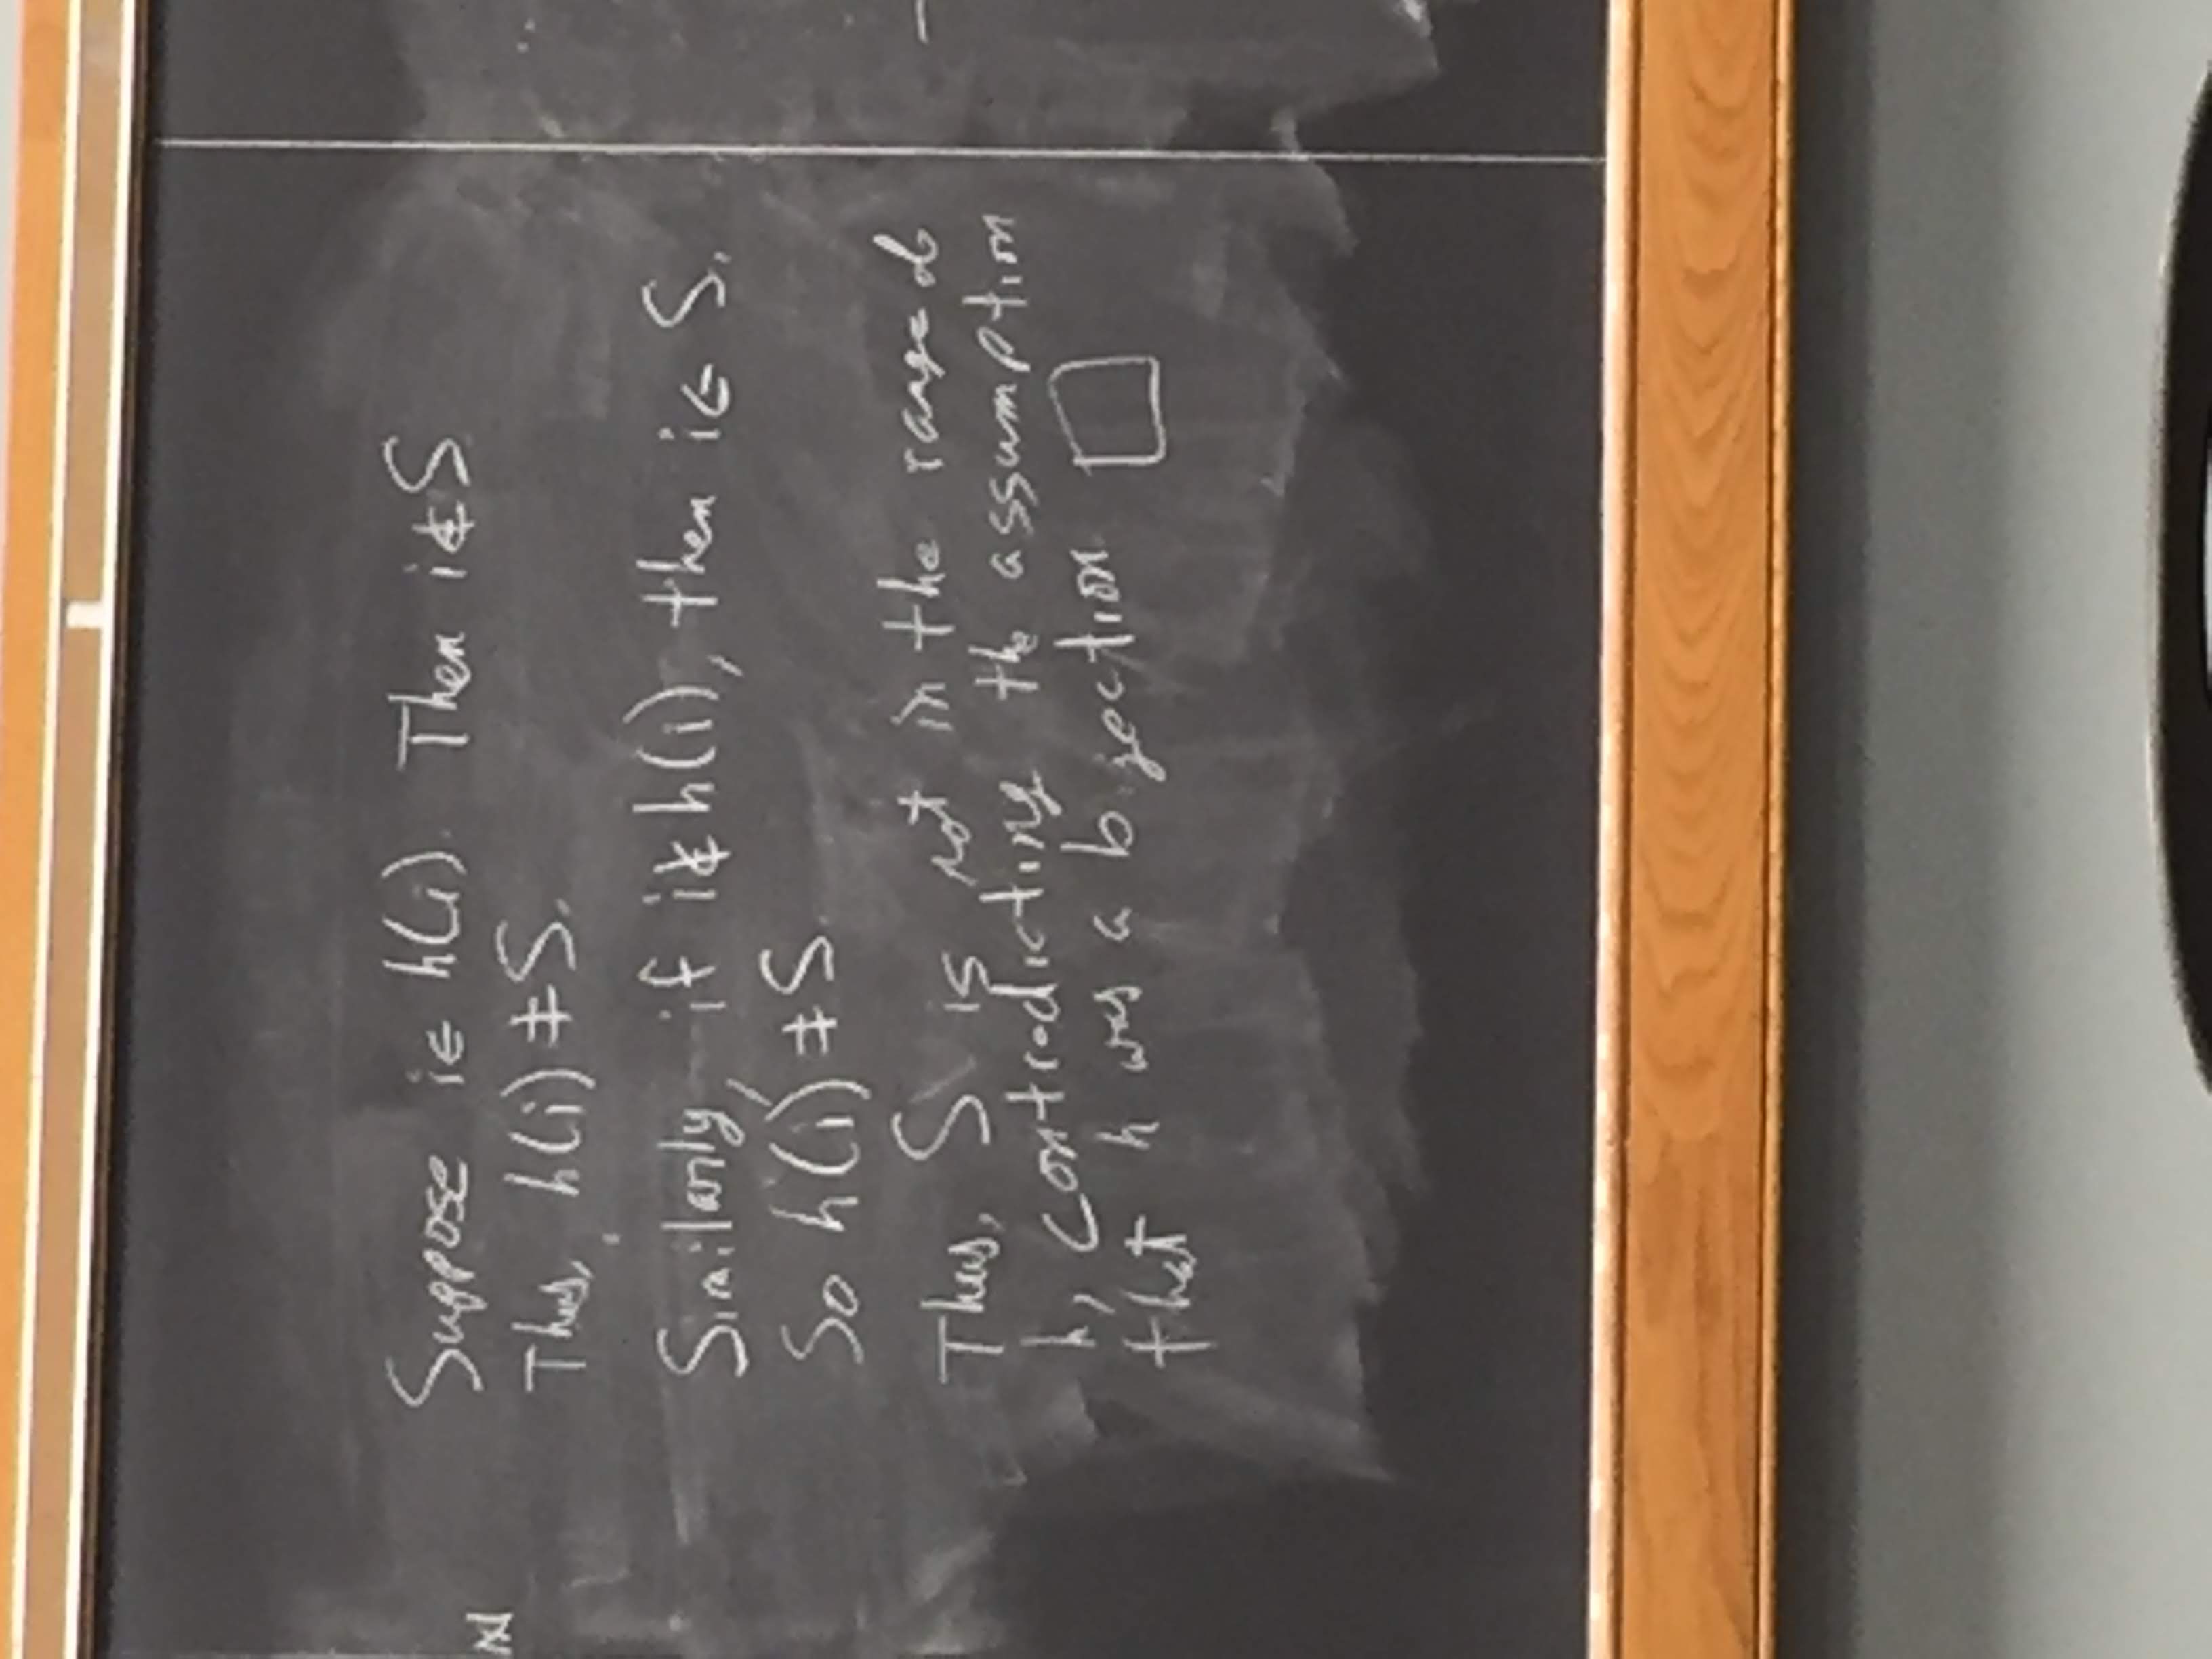 Suppose i∈ h(i). Then i∉S
Thus, h(i) ≠ S.
Similarly, if i∉h(i), then i∈ S.
So h(i) ≠ S.
Thus, S is not in the range of
h, contradicting the assumption
that h was a bijection □